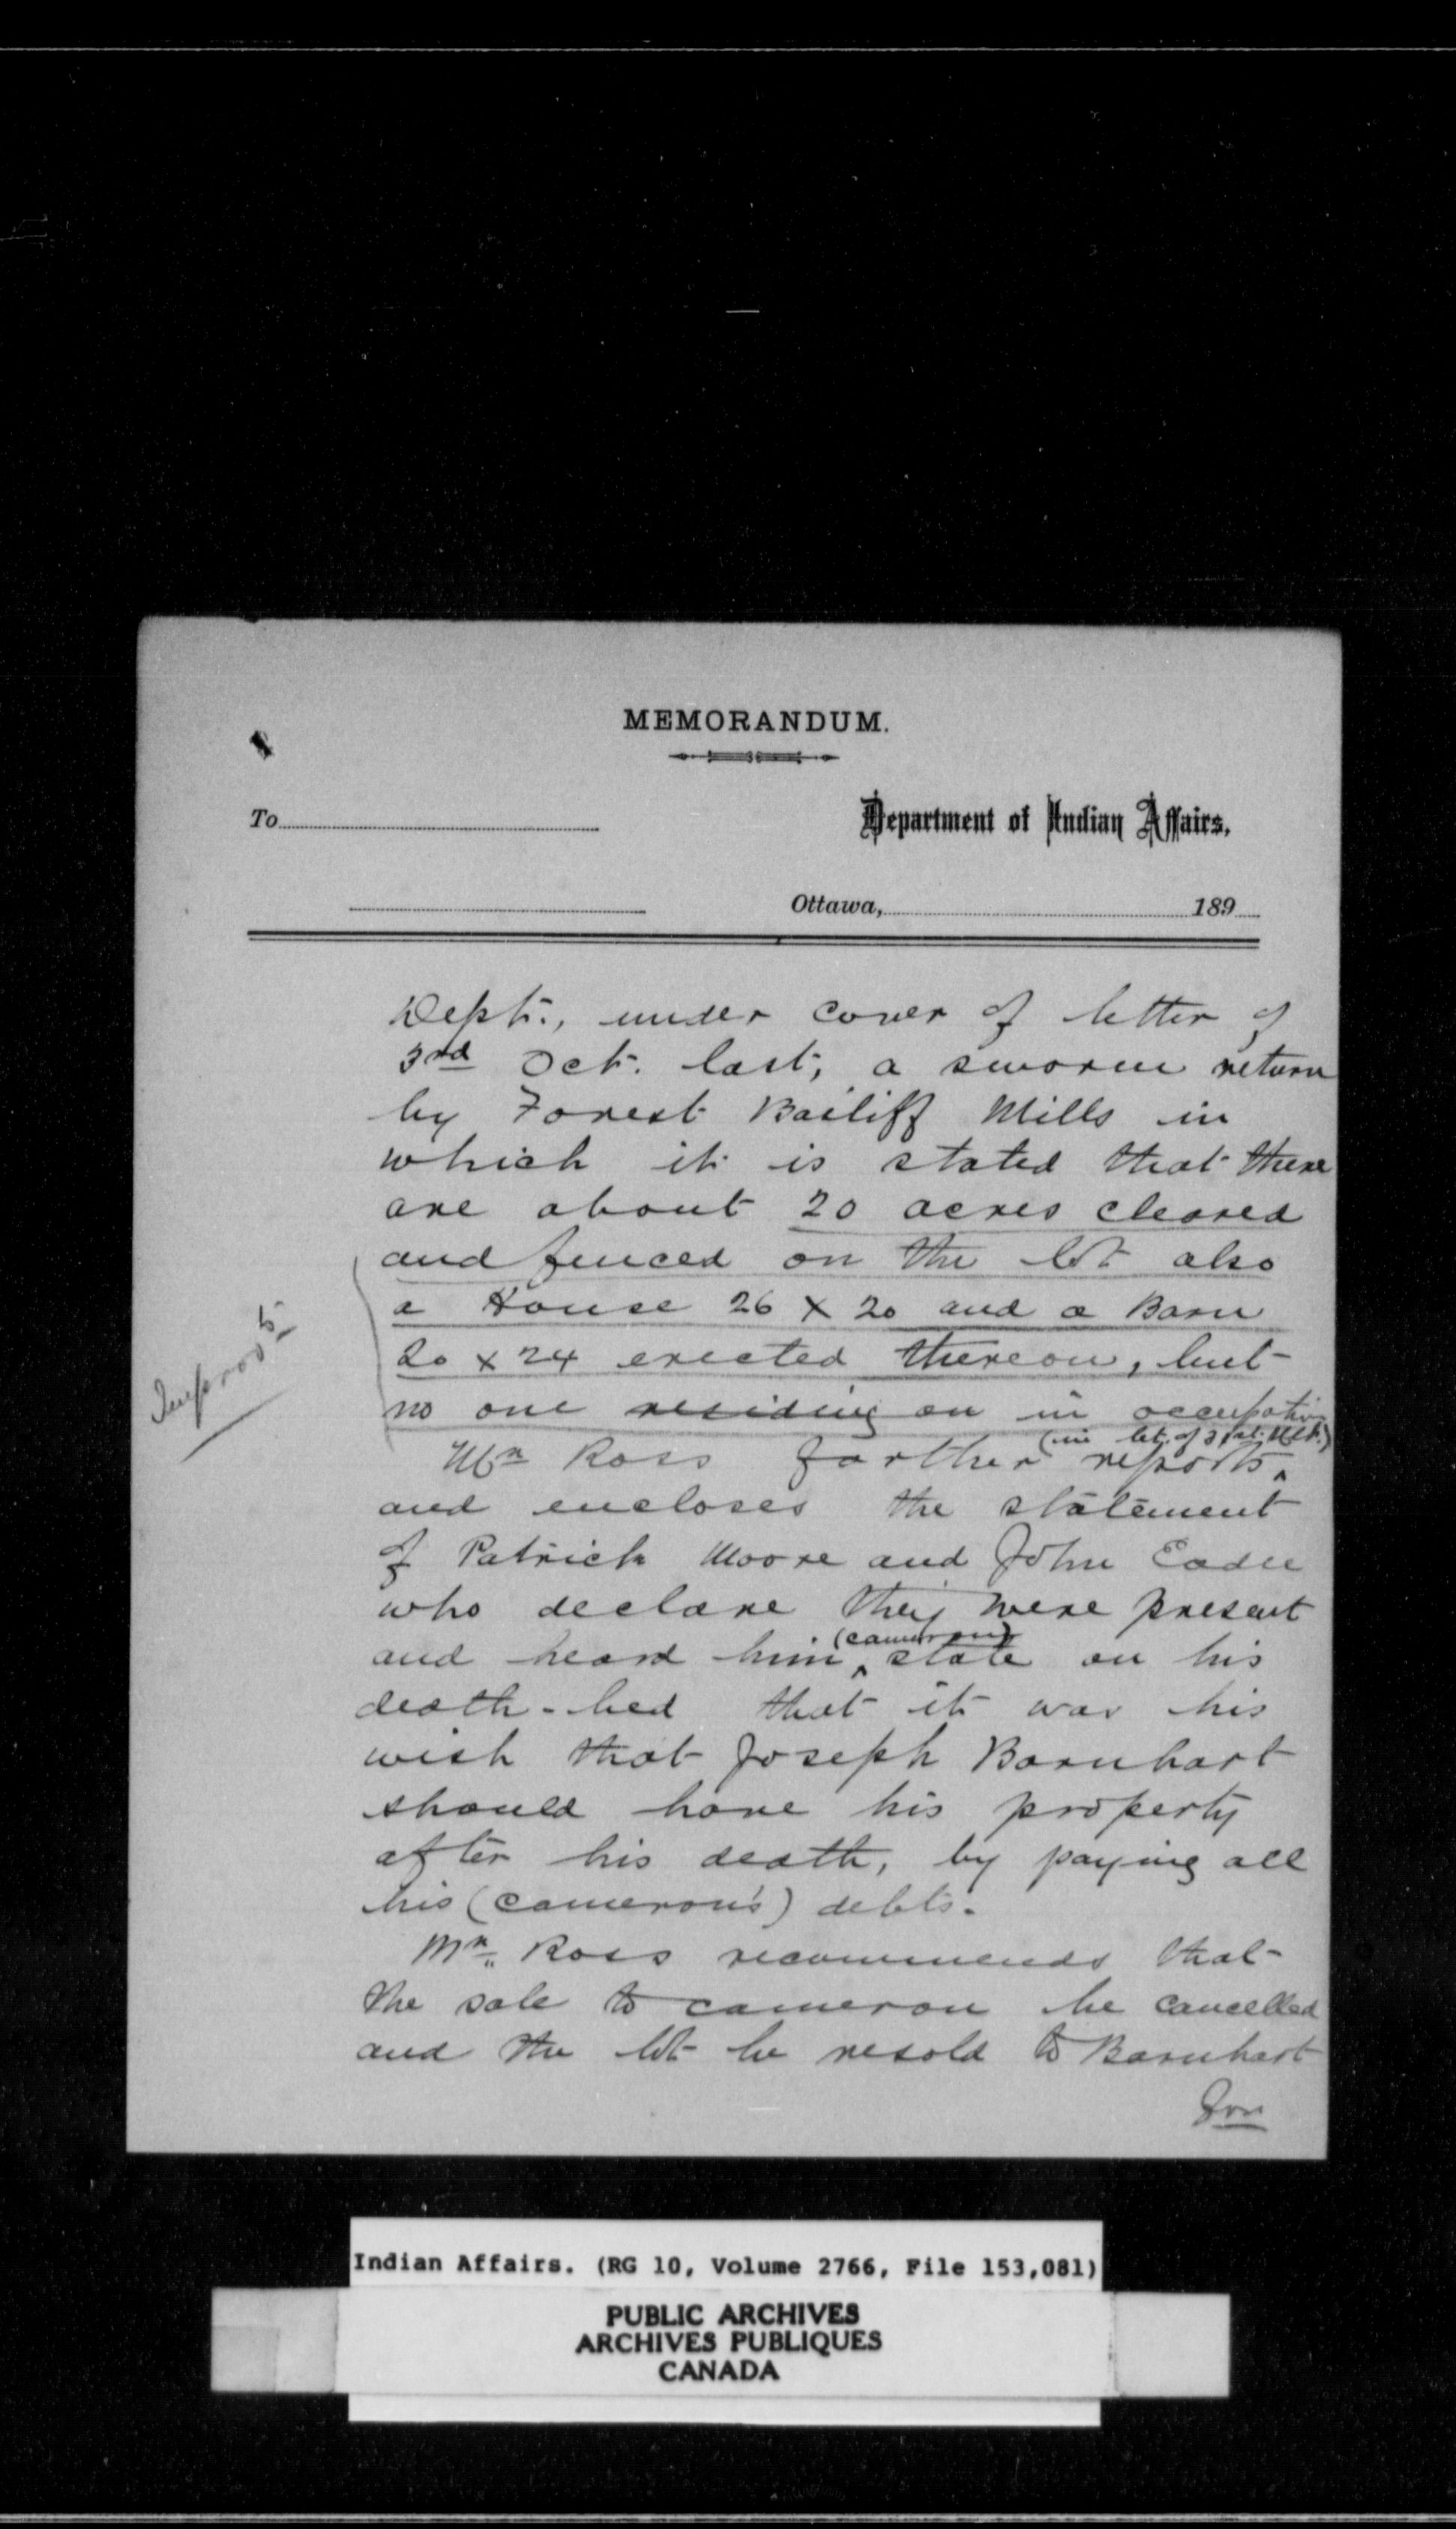 MEMORANDUM.
To
Department of Indian Affairs.
Ottawa, 189
Dept., under cover of letter of
3rd Oct. last, a sworn return
by Forest Bailiff Mills in
which it is stated that there
are about 20 acres cleared
and fenced on the lot also
a House 26 x 20 and a Barn
20 x 24 erected thereon, but
no one residing on in occupation
Improvts
(in let. of 31st Ulto.)
Mr Ross further reports
and encloses the statement
of Patrick Moore and John Eadie
who declare they were present
(Cameron)
and heard him state on his
death-bed that it was his
wish that Joseph Barnhart
should have his property
after his death, by paying all
his (Cameron's) debts.
Mr. Ross recommends that
the sale to Cameron be cancelled
and the lot be resold to Barnhart
for
Indian Affairs. (RG 10, Volume 2766, File 153,081)
PUBLIC ARCHIVES
ARCHIVES PUBLIQUES
CANADA